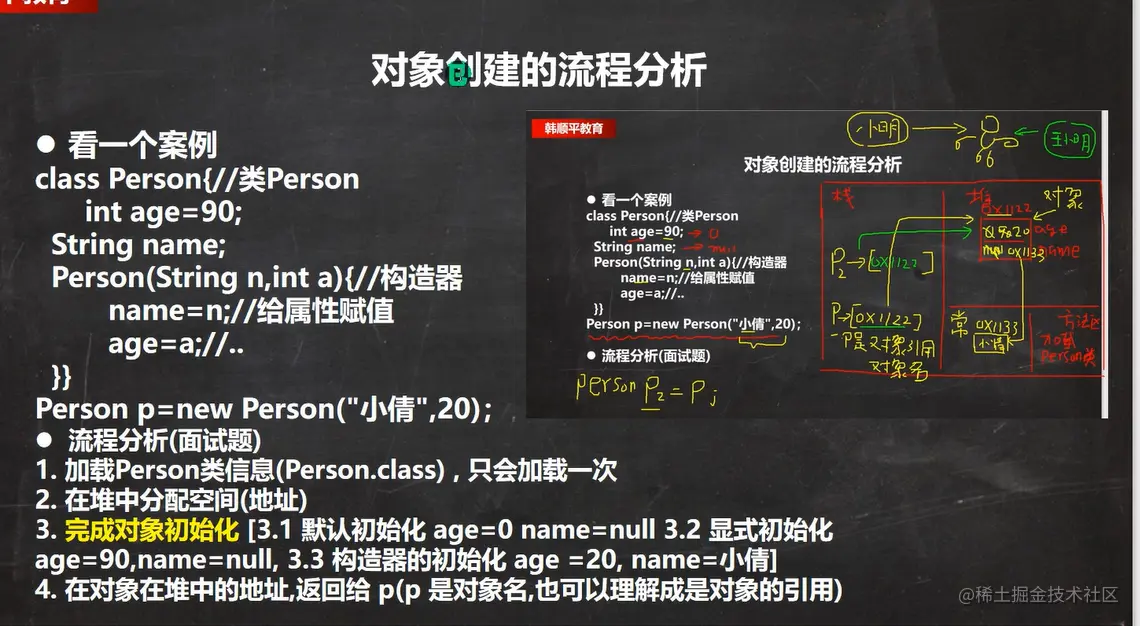 对象创建的流程分析
● 看一个案例
class Person{//类Person
int age=90;
String name;
Person(String n,int a){//构造器
name=n;//给属性赋值
age=a;//..
}}
Person p=new Person("小倩",20);
● 流程分析(面试题)
1. 加载Person类信息(Person.class)，只会加载一次
2. 在堆中分配空间(地址)
3. 完成对象初始化 [3.1 默认初始化 age=0 name=null 3.2 显式初始化
age=90,name=null, 3.3 构造器的初始化 age =20, name=小倩]
4. 在对象在堆中的地址,返回给 p(p 是对象名,也可以理解成是对象的引用)
韩顺平教育
对象创建的流程分析
● 看一个案例
class Person{//类Person
int age=90; → 0
String name; → null
Person(String n,int a){//构造器
name=n;//给属性赋值
age=a;//..
}}
Person p=new Person("小倩",20);
● 流程分析(面试题)
person P2=P;
小明
王小明
栈
堆
对象
0X1122
age
name
0X1133
P2→[0X1122]
P→[0X1122]
P是对象引用
对象名
常
0X1133
小倩
方法区
加载
Person类
@稀土掘金技术社区